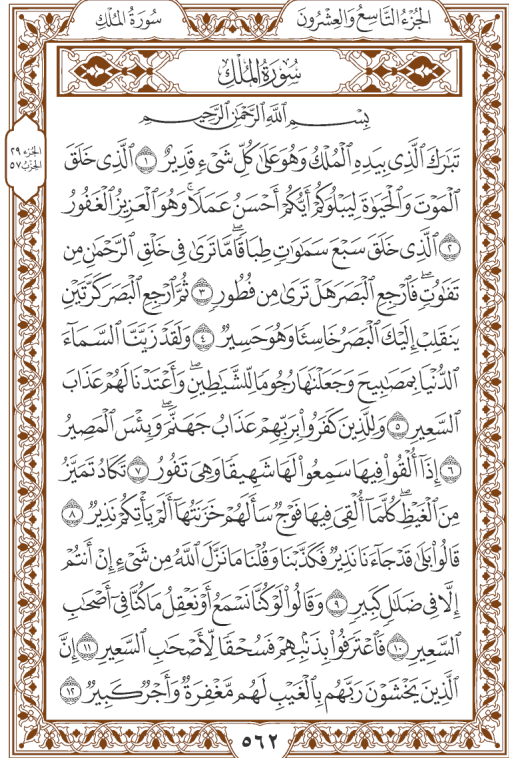 الجُزْءُ التَّاسِعُ وَالعِشْرُونَ
سُورَةُ المُلْكِ
سُورَةُ المُلْكِ
الجزء ٢٩
الحزب ٥٧
بِسْمِ ٱللَّهِ ٱلرَّحْمَٰنِ ٱلرَّحِيمِ
تَبَٰرَكَ ٱلَّذِى بِيَدِهِ ٱلْمُلْكُ وَهُوَ عَلَىٰ كُلِّ شَىْءٍ قَدِيرٌ ١ ٱلَّذِى خَلَقَ
ٱلْمَوْتَ وَٱلْحَيَوٰةَ لِيَبْلُوَكُمْ أَيُّكُمْ أَحْسَنُ عَمَلًا ۚ وَهُوَ ٱلْعَزِيزُ ٱلْغَفُورُ
٢ ٱلَّذِى خَلَقَ سَبْعَ سَمَٰوَٰتٍ طِبَاقًا ۖ مَّا تَرَىٰ فِى خَلْقِ ٱلرَّحْمَٰنِ مِن
تَفَٰوُتٍ ۖ فَٱرْجِعِ ٱلْبَصَرَ هَلْ تَرَىٰ مِن فُطُورٍ ٣ ثُمَّ ٱرْجِعِ ٱلْبَصَرَ كَرَّتَيْنِ
يَنقَلِبْ إِلَيْكَ ٱلْبَصَرُ خَاسِئًا وَهُوَ حَسِيرٌ ٤ وَلَقَدْ زَيَّنَّا ٱلسَّمَآءَ
ٱلدُّنْيَا بِمَصَٰبِيحَ وَجَعَلْنَٰهَا رُجُومًا لِّلشَّيَٰطِينِ ۖ وَأَعْتَدْنَا لَهُمْ عَذَابَ
ٱلسَّعِيرِ ٥ وَلِلَّذِينَ كَفَرُوا۟ بِرَبِّهِمْ عَذَابُ جَهَنَّمَ ۖ وَبِئْسَ ٱلْمَصِيرُ
٦ إِذَآ أُلْقُوا۟ فِيهَا سَمِعُوا۟ لَهَا شَهِيقًا وَهِىَ تَفُورُ ٧ تَكَادُ تَمَيَّزُ
مِنَ ٱلْغَيْظِ ۖ كُلَّمَآ أُلْقِىَ فِيهَا فَوْجٌ سَأَلَهُمْ خَزَنَتُهَآ أَلَمْ يَأْتِكُمْ نَذِيرٌ ٨
قَالُوا۟ بَلَىٰ قَدْ جَآءَنَا نَذِيرٌ فَكَذَّبْنَا وَقُلْنَا مَا نَزَّلَ ٱللَّهُ مِن شَىْءٍ إِنْ أَنتُمْ
إِلَّا فِى ضَلَٰلٍ كَبِيرٍ ٩ وَقَالُوا۟ لَوْ كُنَّا نَسْمَعُ أَوْ نَعْقِلُ مَا كُنَّا فِىٓ أَصْحَٰبِ
ٱلسَّعِيرِ ١٠ فَٱعْتَرَفُوا۟ بِذَنۢبِهِمْ فَسُحْقًا لِّأَصْحَٰبِ ٱلسَّعِيرِ ١١ إِنَّ
ٱلَّذِينَ يَخْشَوْنَ رَبَّهُم بِٱلْغَيْبِ لَهُم مَّغْفِرَةٌ وَأَجْرٌ كَبِيرٌ ١٢
٥٦٢